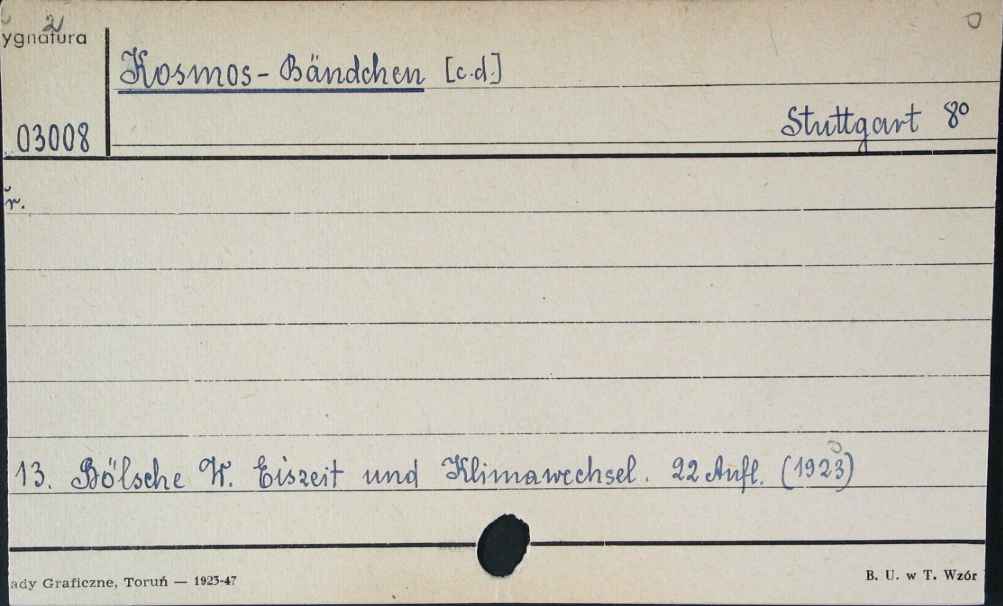 2
ygnatura
Kosmos-Bändchen [c.d.]
03008
Stuttgart 8°
r.
13. Bölsche W. Eiszeit und Klimawechsel. 22 Aufl. (1923)
ady Graficzne, Toruń — 1923-47
B. U. w T. Wzór